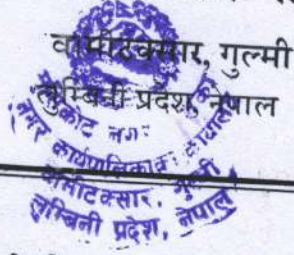 वामीटक्सार, गुल्मी
लुम्बिनी प्रदेश, नेपाल
नगर कार्यपालिकाको कार्यालय
वामीटक्सार, गुल्मी
लुम्बिनी प्रदेश, नेपाल